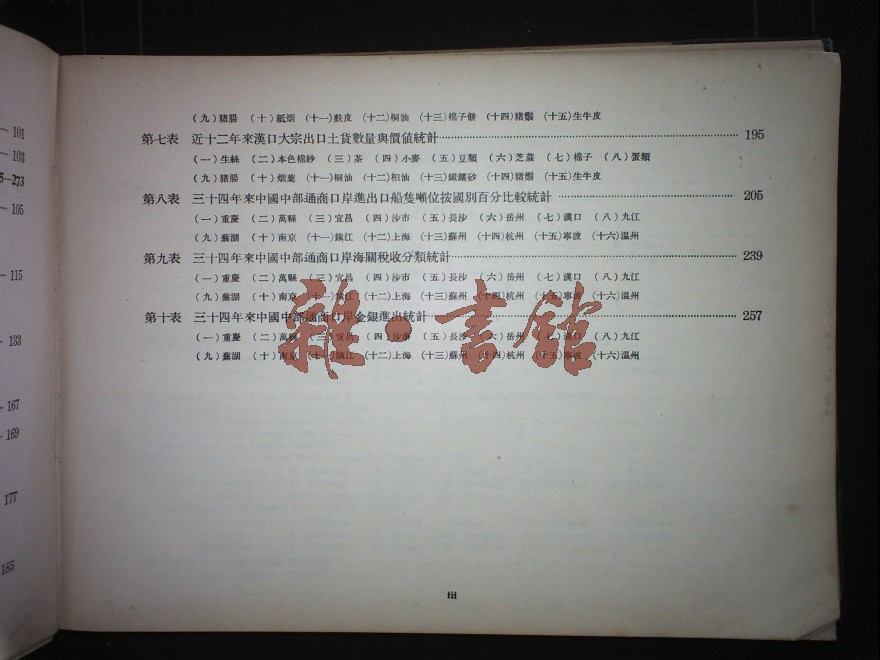 (九)豬腸 (十)紙烟 (十一)麩皮 (十二)桐油 (十三)棉子餅 (十四)豬鬃 (十五)生牛皮
第七表 近十二年來漢口大宗出口土貨數量與價值統計 195
(一)生絲 (二)本色棉紗 (三)茶 (四)小麥 (五)豆類 (六)芝蔴 (七)棉子 (八)蛋類
(九)豬腸 (十)烟葉 (十一)桐油 (十二)桕油 (十三)鐵鑛砂 (十四)豬鬃 (十五)生牛皮
第八表 三十四年來中國中部通商口岸進出口船隻噸位按國別百分比較統計 205
(一)重慶 (二)萬縣 (三)宜昌 (四)沙市 (五)長沙 (六)岳州 (七)漢口 (八)九江
(九)蕪湖 (十)南京 (十一)鎮江 (十二)上海 (十三)蘇州 (十四)杭州 (十五)寧波 (十六)溫州
第九表 三十四年來中國中部通商口岸海關稅收分類統計 239
(一)重慶 (二)萬縣 (三)宜昌 (四)沙市 (五)長沙 (六)岳州 (七)漢口 (八)九江
(九)蕪湖 (十)南京 (十一)鎮江 (十二)上海 (十三)蘇州 (十四)杭州 (十五)寧波 (十六)溫州
第十表 三十四年來中國中部通商口岸金銀進出統計 257
(一)重慶 (二)萬縣 (三)宜昌 (四)沙市 (五)長沙 (六)岳州 (七)漢口 (八)九江
(九)蕪湖 (十)南京 (十一)鎮江 (十二)上海 (十三)蘇州 (十四)杭州 (十五)寧波 (十六)溫州
雜·書館
iii
101
103
5-273
105
115
133
167
169
177
185